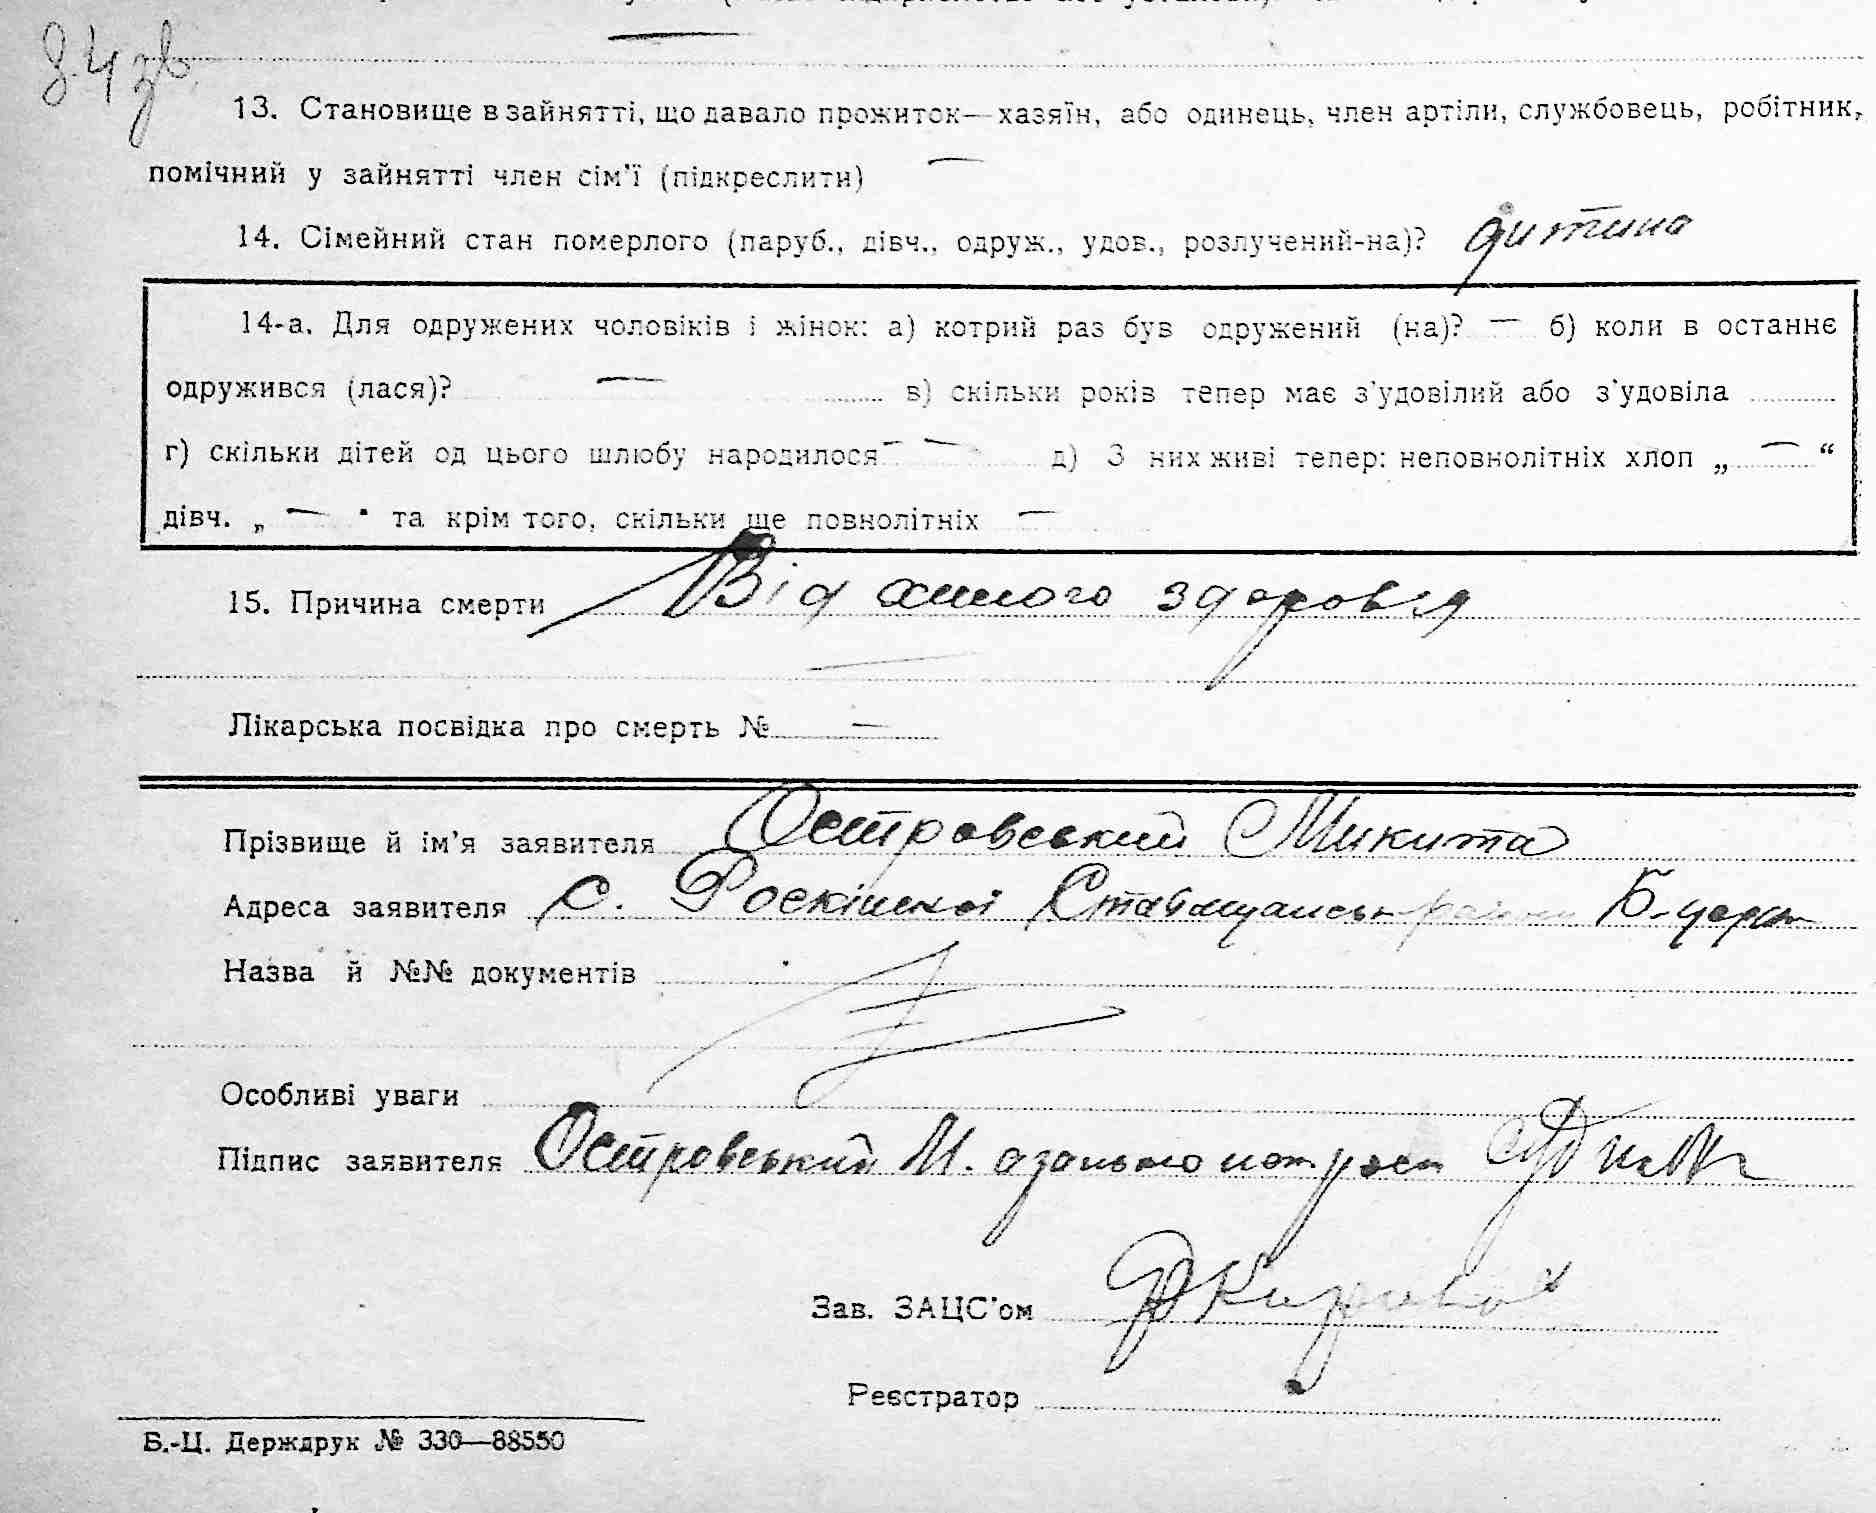 84 зв.
13. Становище в зайнятті, що давало прожиток—хазяїн, або одинець, член артіли, службовець, робітник,
помічний у зайнятті член сім'ї (підкреслити) —
14. Сімейний стан померлого (паруб., дівч., одруж., удов., розлучений-на)? дитина
14-а. Для одружених чоловіків і жінок: а) котрий раз був одружений (на)? — б) коли в останнє
одружився (лася)? — в) скільки років тепер має з'удовілий або з'удовіла
г) скільки дітей од цього шлюбу народилося — — д) З них живі тепер: неповнолітніх хлоп „ — “
дівч. „ — " та крім того, скільки ще повнолітніх —
15. Причина смерти Від здоровя
Лікарська посвідка про смерть № —
Прізвище й ім'я заявителя Островський Микита
Адреса заявителя с. району Б-церк
Назва й №№ документів
Особливі уваги
Підпис заявителя Островський М.
Зав. ЗАЦС'ом
Реєстратор
Б.-Ц. Держдрук № 330—88550